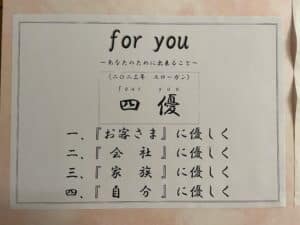 for you
～あなたのために出来ること～
（二〇二三年 スローガン）
four you
四 優
一、『お客さま』に優しく
二、『会 社』に優しく
三、『家 族』に優しく
四、『自 分』に優しく